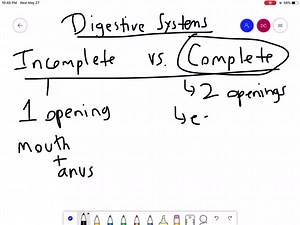 10:45 PM Wed May 27
Digestive Systems
Incomplete vs. Complete
1 opening
↳ 2 openings
mouth
+
anus
↳ e